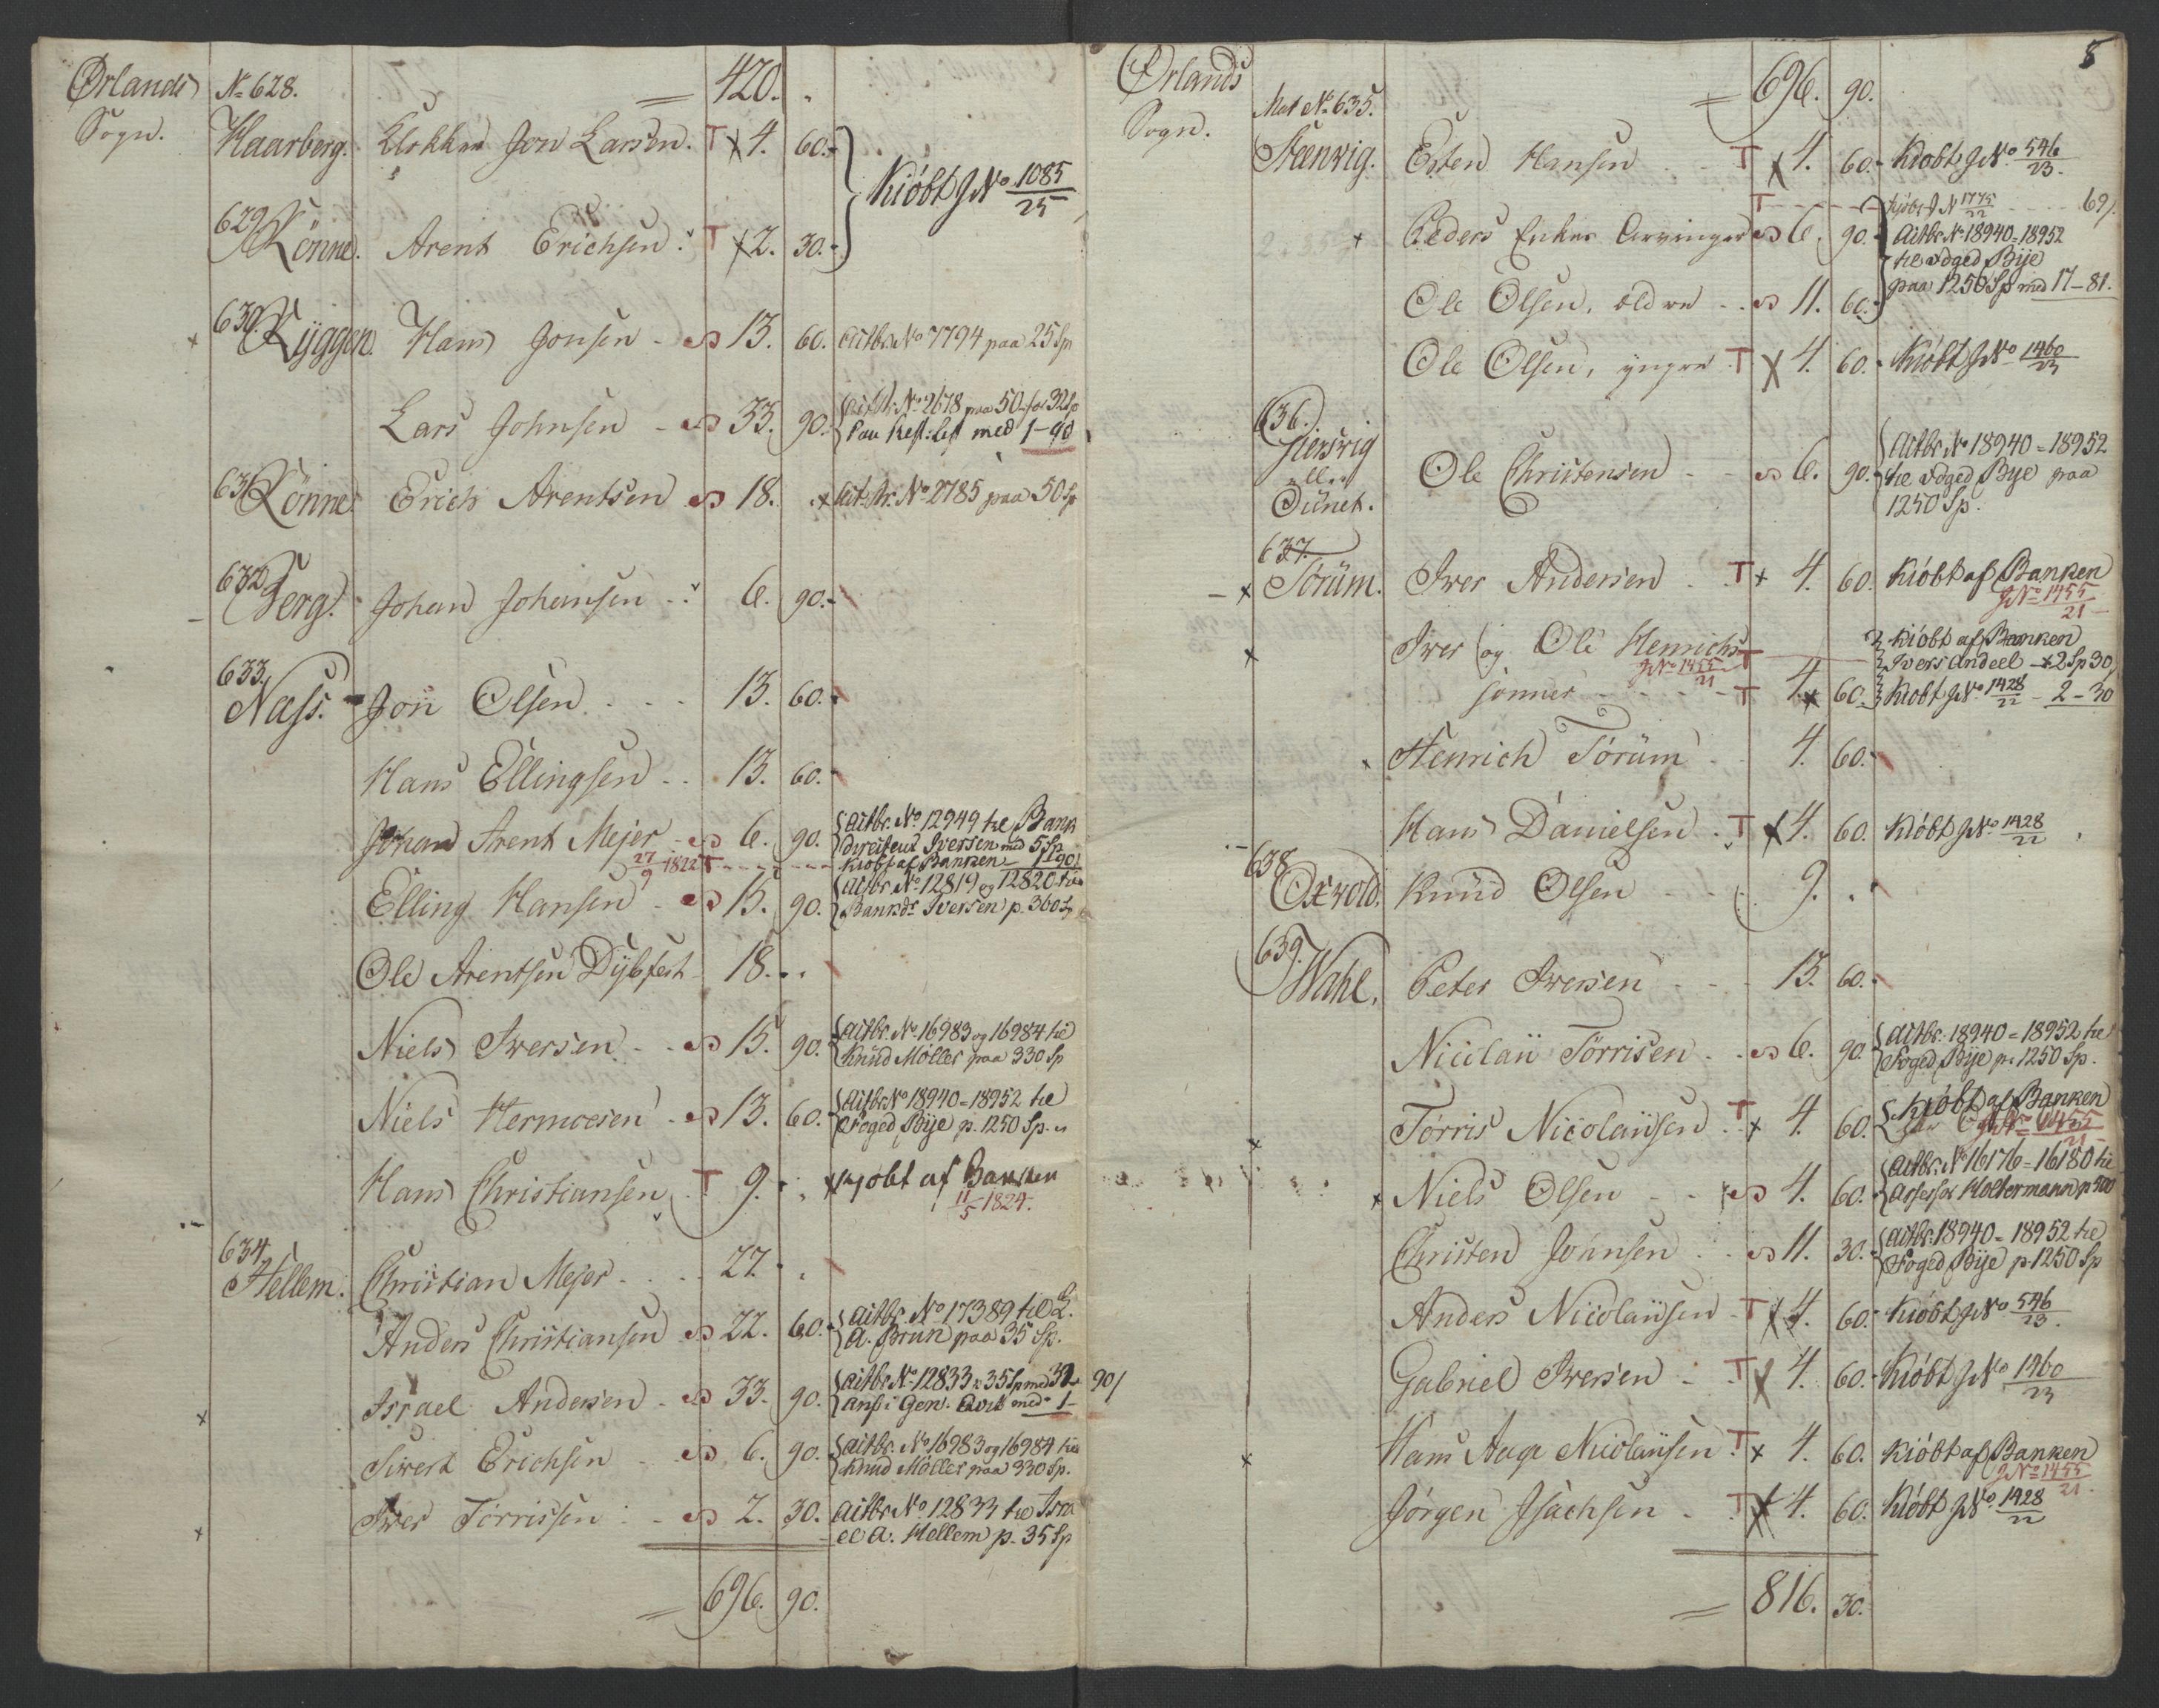 Ørlands Sogn.
No 628. = 420. „
Haarberg. Klokker Jon Larsen. T x 4. 60.
Kiöbt JNo 1085/25
629 Rönne. Arent Erichsen T x 2. 30.
630. Ryggen. Hans Jonsen - 13. 60. Actbr. No 7794 paa 25 Sp
Lars Johnsen - 33. 90. Act.br. No 2678 paa 50 for 32 Sp
med 1-90
631 Rönne Erich Arentsen 18. „ x Act.br. No 2785 paa 50 Sp
632 Berg. Johan Johansen 6. 90.
633. Næss. Jon Olsen 13. 60.
Hans Ellingsen 13. 60.
Johan Arent Mejer 6. 90. Actbr. No 12949 til Bank
Iversen med 5 Sp
27/9 1822 T Kiobt af Banken 1 90
Elling Hansen 15. 90. Actbr. No 12819 og 12820 til
Bankdr Iversen p. 360 Sp
Ole Arentsen Dybfest 18. „
Niels Iversen 15. 90. Actbr. No 16983 og 16984 til
Knud Möller paa 330 Sp
Niels Hermoesen 13. 60. Actbr No 18940=18952 til
Foged Bije p. 1250 Sp.
Hans Christiansen T 9. „ x Kjobt af Banken
11/5 1824.
634. Hellem. Christian Mejer 27. „
Anders Christiansen 22. 60. Actbr. No 17389 til L.
A. Brun paa 35 Sp.
Israel Andersen 33. 90. Actbr No 12833 x 35 Sp med 32
Ans i Gen. med 1- 90/
Siwert Erichsen 6. 90. Actbr. No 16983 og 16984 til
Knud Möller paa 330 Sp.
Iver Törrissen 2. 30. Actbr No 12833 til Isra
el A. Hellem p. 35 Sp
= 696. 90.
8
Ørlands Sogn.
Mat No 635. = 696. 90.
Steenvig. Esten Hansen T x 4. 60. Kiobt JNo 546/23.
T Kjöbt J N 1775/22 69/.
x Peders Enkes Arvinger 6. 90. Actbr No 18940=18952
til Foged Bije
Ole Olsen, eldre 11. 60. paa 1250 Sp med 17-81.
Ole Olsen, yngre T x 4. 60. Kiöbt JNo 1460/23
636. Hersvig
ell.
Dünet. Ole Christensen 6. 90. Actbr. No 18940=18952
til Foged Bije paa
1250 Sp.
637. x Törüm. Iver Andersen T x 4. 60. Kiöbt af Banken
JNo 1455/21
x Iver og Ole Henrichs T Kiöbt af Banken
JNo 1455/21 Ivers Andeel x 2 Sp 30
sönner T 4. x 60. Kiobt JNo 1428/22 - 2-30
x Henrich Törüm 4. 60.
Hans Danielsen T x 4. 60. Kiöbt JNo 1428/22
638 Oxvold. Knüd Olsen 9. „
639. Wahl. Peter Iversen 13. 60.
Nicolaii Törrisen 6. 90. Actbr. 18940=18952 til
Foged Bije p. 1250 Sp.
x Törris Nicolaüsen T x 4. 60. Kjöbt af Banken
JNo 1455/21
x Niels Olsen 4. 60. Actbr. No 16176=16180 til
Assessor Holtermann p 500
Christen Johnsen 11. 30. Actbr. 18940=18952 til
Foged Bije p. 1250 Sp
Anders Nicolaijsen T x 4. 60. Kiobt JNo 546/23.
Gabriel Iversen T x 4. 60. Kiöbt JNo 1460/23
x Hans Aage Nicolaijsen T x 4. 60. Kiöbt af Banken
JNo 1455/21.
Jörgen Isachsen T x 4. 60. Kiöbt JNo 1428/22
= 816. 30.